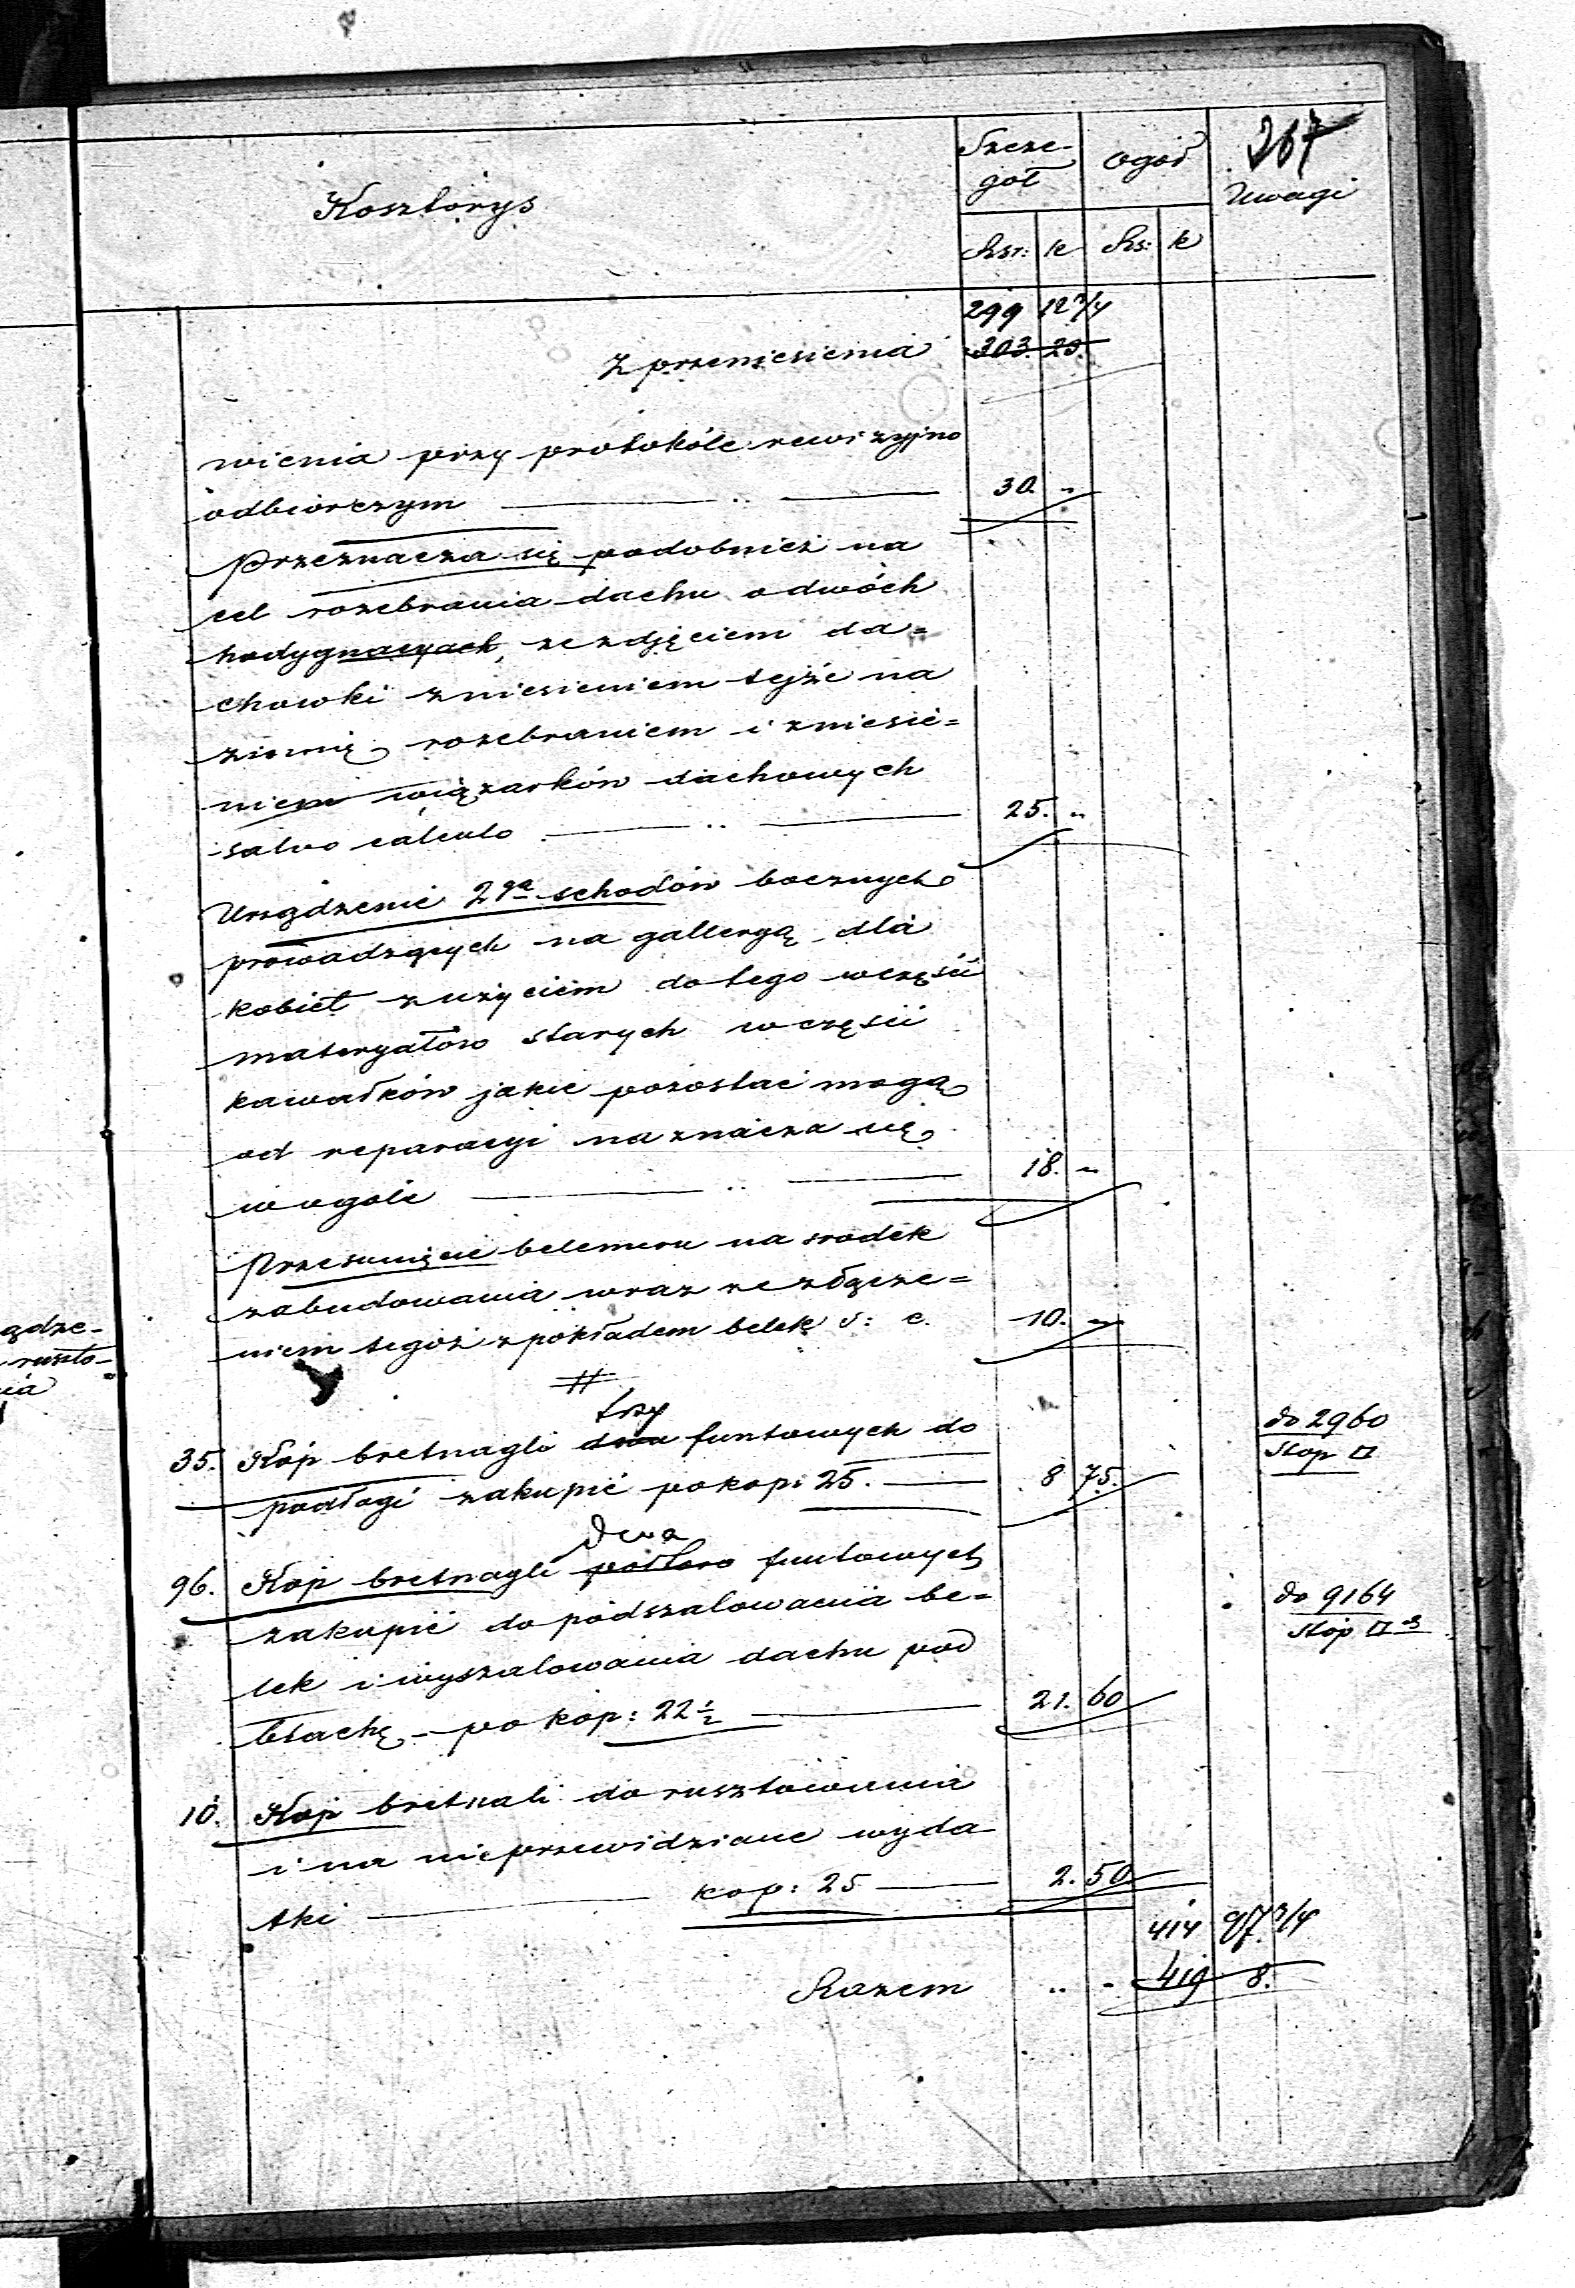 267
Kosztorys
Szcze-
gół
ogół
Uwagi
Rsr: k
Rs: k
299 12 3/4
Z przeniesienia 303. 20.
wienia przy protokóle rewizyjno
odbiorczym — " — 30. "
Przeznacza się podobnież na
cel rozebrania dachu o dwóch
ze zdjęciem da=
chowki zniesieniem tejże na
ziemię, rozebraniem i zniesie=
niem wiązarków dachowych
salvo calculo — " — 25. "
Urządzenie 2ga schodów bocznych
prowadzących na galleryą dla
kobiet z użyciem do tego w części
materyałów starych w części
kawałków jakie pozostać mogą
od reparacyi naznacza się
w ogóle — " — 18. "
Przesunięcie belemeru na srodek
zabudowania wraz ze złącze=
niem tegoż z pokładem belek s: c. 10. "
trzy
35. Kóp bretnagli dwa funtowych do
podłogi zakupić po kop: 25. — 8 75.
do 2960
stop □
Dwa
96. Kop bretnagli półtora funtowych
zakupić do podszalowania be=
lek i wyszalowania dachu pod
blachę - po kop: 22 1/2 — 21. 60
do 9164
stóp □
10. Kop bretnali do rusztowania
i na nieprzewidziane wyda
tki — kop: 25 — 2. 50.
414 97 3/4
Razem " " 419 8.
ądze-
ruszto-